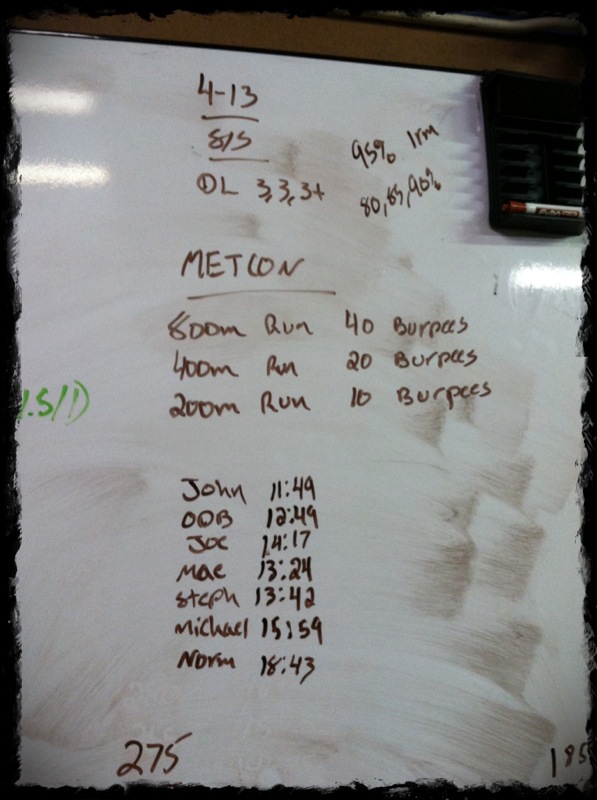 4-13
S/S
DL 3,3,3+
95% 1rm
80,85,90%
METCON
800m Run 40 Burpees
400m Run 20 Burpees
200m Run 10 Burpees
1.5/1)
John 11:49
OOB 12:49
Joe 14:17
Mae 13:24
Steph 13:42
Michael 15:59
Norm 18:43
275
185